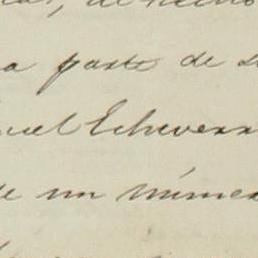 de hecho
a parte de
Echever
de un númer